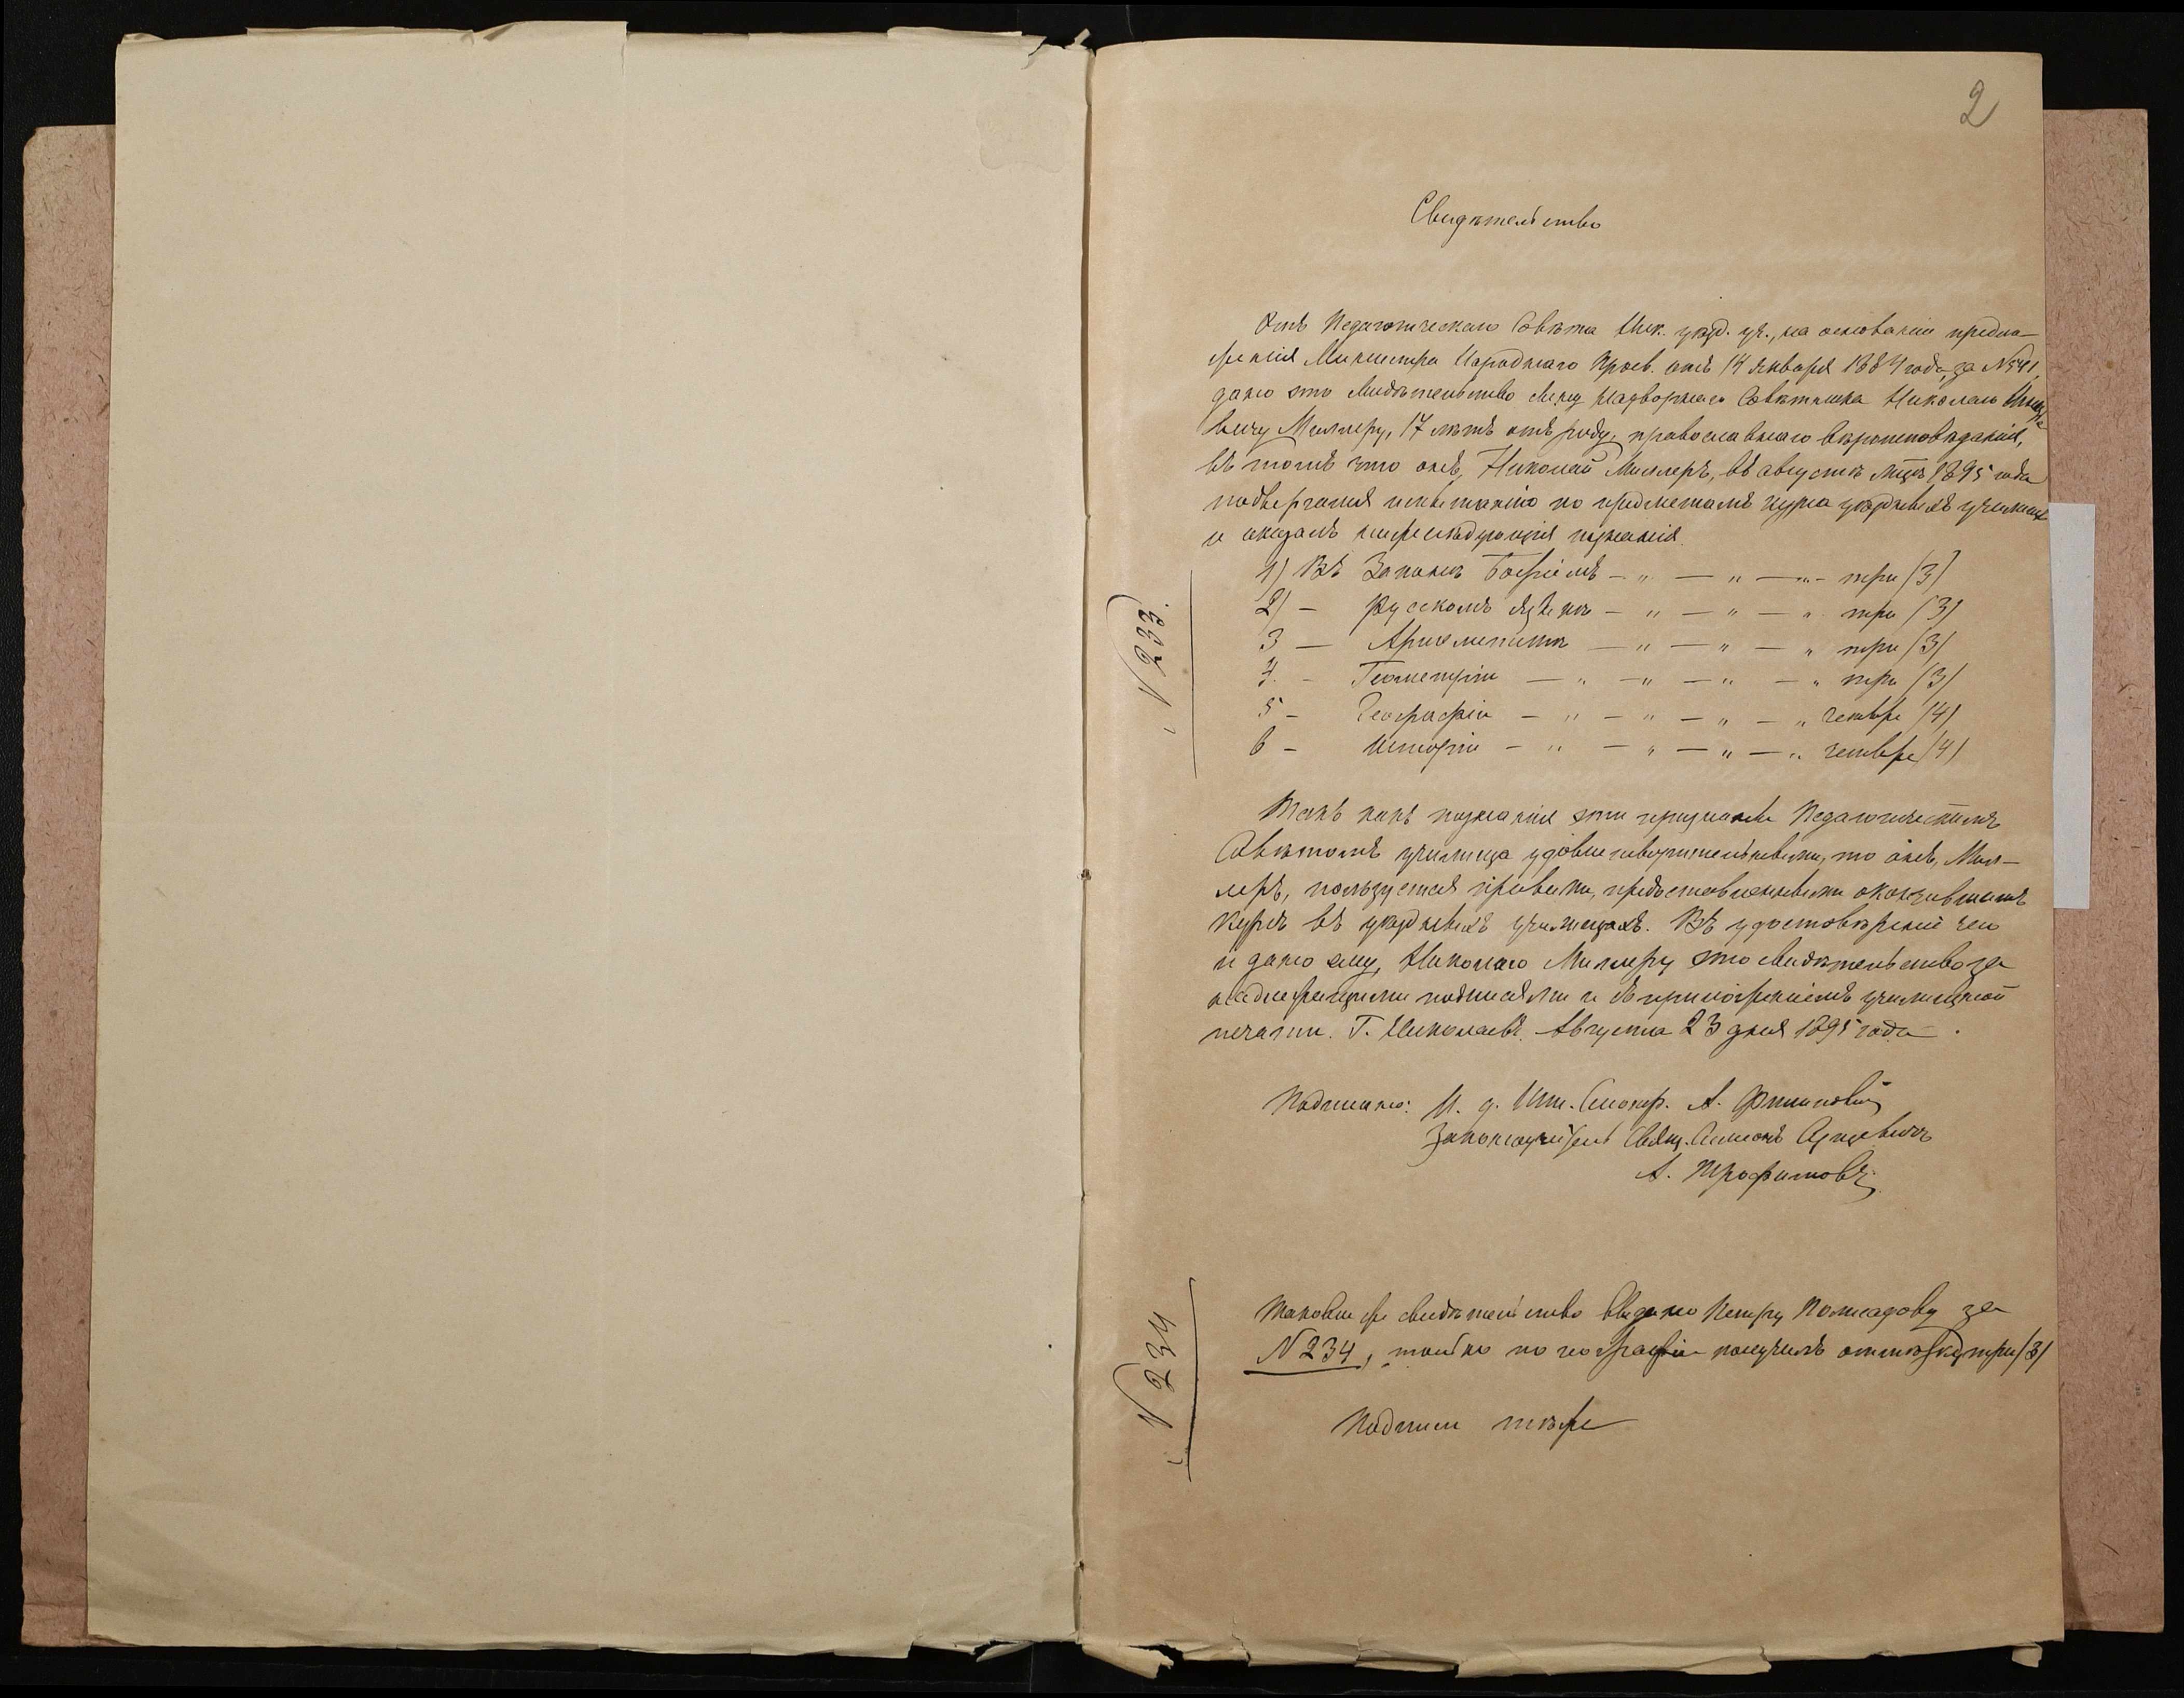 2
Свидѣтельство
Отъ Педагогическаго Совѣта Ник. уѣзд. уч., на основаніи предло-
женія Министра Народнаго Просв. отъ 14 Января 1884 года, за № 541,
дано это свидѣтельство сыну Надворнаго Совѣтника Николаю
вичу Миллеру, 17 лѣтъ отъ роду, православнаго вѣроисповѣданія,
въ томъ что онъ, Николай Миллеръ, въ августѣ мцѣ 1895 года
подвергался испытанію по предметамъ курса уѣздныхъ училищъ
и оказалъ нижеслѣдующія познанія.
1) Въ Законѣ Божіемъ — „ — „ — „ — три (3)
2) — Русскомъ языкѣ — „ — „ — „ три (3)
3 — Ариѳметикѣ — „ — „ — „ три (3)
4. — Геометріи — „ — „ — „ — „ три (3)
5 — Географіи — „ — „ — „ — „ четыре (4)
6 — Исторіи — „ — „ — „ — „ четыре (4)
№ 233.
Такъ какъ познанія эти признаны Педагогическимъ
Совѣтомъ училища удовлетворительными, то онъ, Мил-
леръ, пользуется правами, предоставленными окончившимъ
курсъ въ уѣздныхъ училищахъ. Въ удостовѣреніе чего
и дано ему, Николаю Миллеру это свидѣтельство за
надлежащими подписями и съ приложеніемъ училищной
печати. Г. Николаевъ. Августа 23 дня 1895 года.
Подписано: И. д. Шт. Смотр. А. Филиповичъ
Законоучитель Свящ. Симеонъ
А. Трофимовъ
Таковое же свидѣтельство выдано Петру за
№ 234, только по географіи получилъ отмѣтку три (3)
Подписи тѣже
№ 234